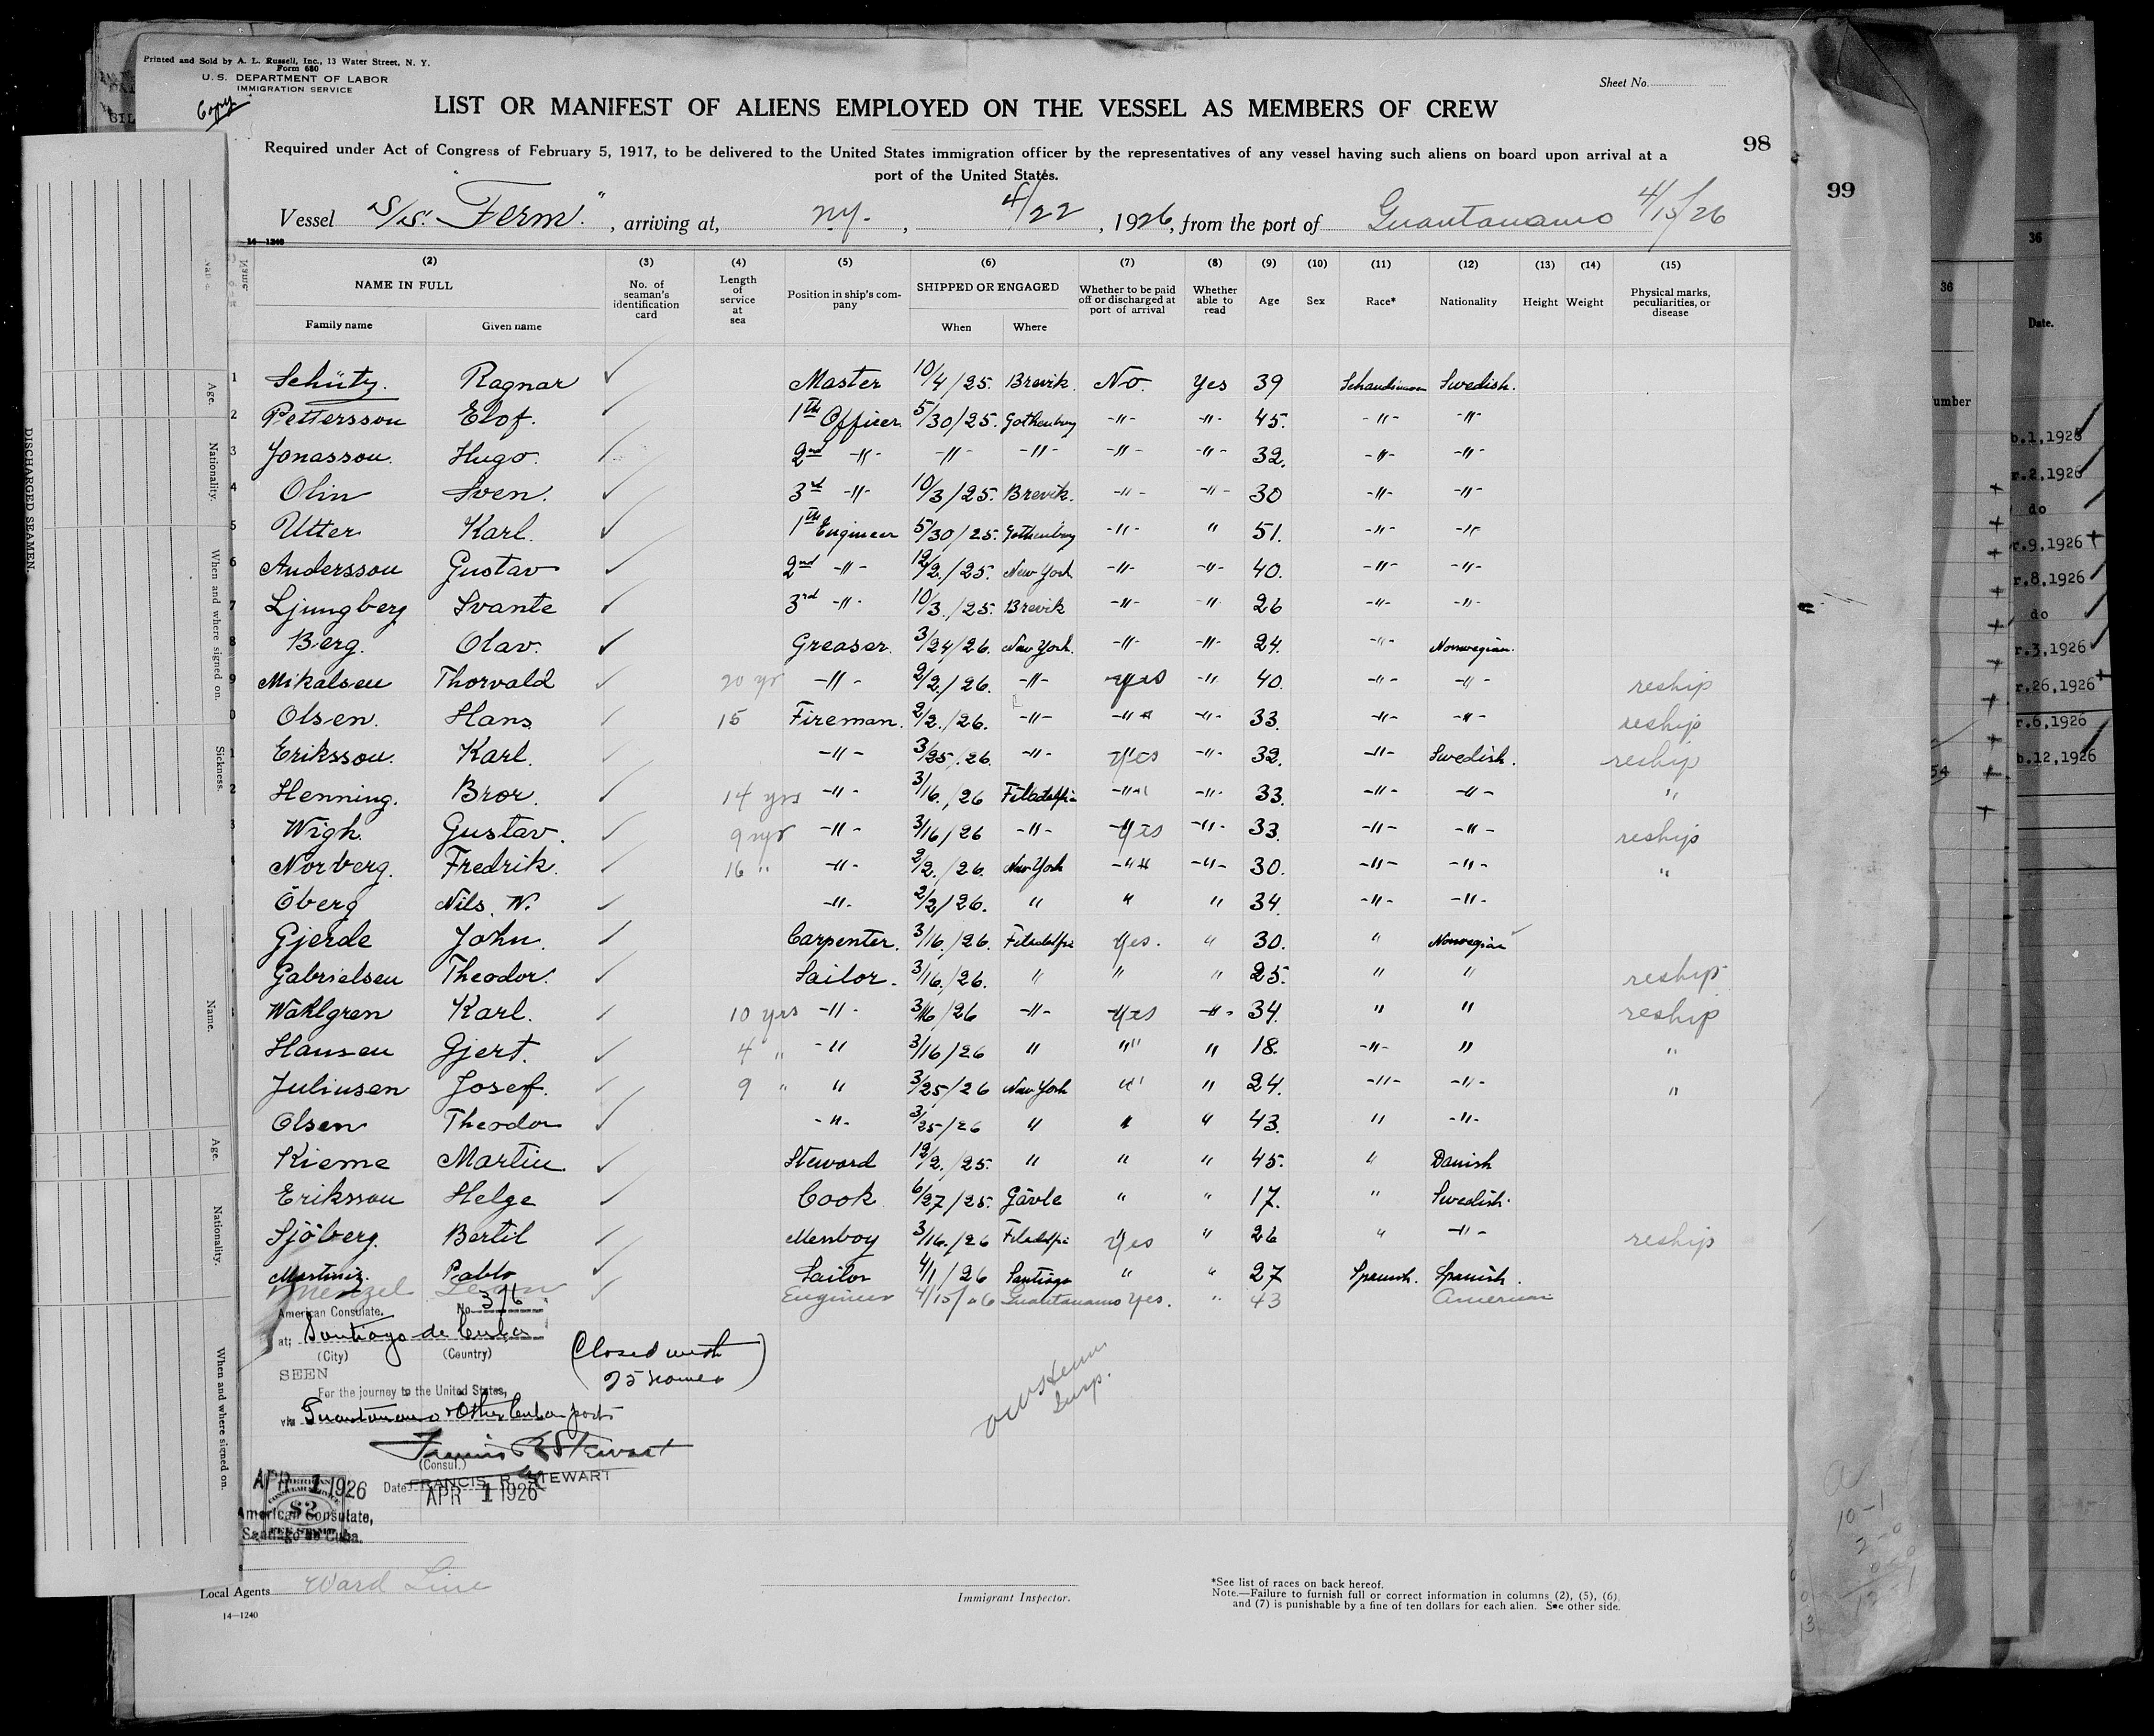 Printed and Sold by A. L. Russell, Inc., 13 Water Street, N. Y.
Form 680
U. S. DEPARTMENT OF LABOR
IMMIGRATION SERVICE
Copy
Sheet No.
LIST OR MANIFEST OF ALIENS EMPLOYED ON THE VESSEL AS MEMBERS OF CREW
98
Required under Act of Congress of February 5, 1917, to be delivered to the United States immigration officer by the representatives of any vessel having such aliens on board upon arrival at a
port of the United States.
Vessel S/S. "Ferm", arriving at, N.Y., 4/22, 1926, from the port of Guantanamo 4/15/26
14—1240
(2) (3) (4) (5) (6) (7) (8) (9) (10) (11) (12) (13) (14) (15)
NAME IN FULL
Family name Given name
No. of seaman's identification card
Length of service at sea
Position in ship's company
SHIPPED OR ENGAGED
When Where
Whether to be paid off or discharged at port of arrival
Whether able to read
Age Sex Race* Nationality Height Weight
Physical marks, peculiarities, or disease
1 Schütz. Ragnar Master 10/4/25. Brevik. No. Yes 39 Swedish.
2 Pettersson Elof. 1th Officer. 5/30/25. Gothenburg -"- -"- 45. -"- -"-
3 Jonasson. Hugo. 2nd -"- -"- -"- -"- -"- 32. -"- -"-
4 Olin Sven. 3rd -"- 10/3/25. Brevik. -"- -"- 30 -"- -"-
5 Utter Karl. 1th Engineer 5/30/25. Gothenburg -"- " 51. -"- -"-
6 Andersson Gustav 2nd -"- 12/2./25. New York -"- -"- 40. -"- -"-
7 Ljungberg Svante 3rd -"- 10/3./25. Brevik -"- -"- 26 -"- -"-
8 Berg. Olav. Greaser. 3/24/26. New York. -"- -"- 24. -"- Norwegian.
9 Mikalsen Thorvald 20 yr -"- 2/2./26. -"- yes -"- 40. -"- -"- reship
0 Olsen. Hans 15 Fireman. 2/2./26. -"- -"- -"- 33. -"- -"- reship
1 Eriksson. Karl. -"- 3/25/26. -"- yes -"- 32. -"- Swedish. reship
2 Henning. Bror. 14 yrs -"- 3/16./26 Filadelfia -"- -"- 33. -"- -"- "
3 Wigh. Gustav. 9 yr -"- 3/16/26 -"- yes -"- 33. -"- -"- reship
Norberg. Fredrik. 16 " -"- 2/2./26. New York -"- -"- 30. -"- -"- "
Öberg Nils. W. -"- 2/2/26. " " " 34. -"- -"-
Gjerde John. Carpenter. 3/16./26. Filadelfia Yes. " 30. " Norwegian
Gabrielsen Theodor. Sailor. 3/16./26. " " " 25. " " reship
Wahlgren Karl. 10 yrs -"- 3/16/26 -"- yes -"- 34. " " reship
Hansen Gjert. 4 " -"- 3/16/26 " " " 18. -"- " "
Juliusen Josef. 9 " " 3/25/26 New York " " 24. -"- -"- "
Olsen Theodor -"- 3/25/26 " " " 43. " -"-
Kieme Martin Steward 12/2./25. " " " 45. " Danish
Eriksson Helge Cook 6/27/25. Gävle " " 17. " Swedish.
Sjöberg. Bertil Messboy 3/16./26 Filadelfia Yes " 26 " -"- reship
Martiniz. Pablo Sailor 4/1/26 Santiago " " 27 Spanish. Spanish.
Menzel Engineer 4/15/26 Guantanamo Yes. " 43 American
American Consulate, No. 376
at; Santiago de Cuba
(City) (Country)
(Closed with
25 names)
SEEN
For the journey to the United States,
via Guantanamo & Other Cuban ports
Francis R Stewart
(Consul.)
FRANCIS R. STEWART
APR 1 1926 Date APR 1 1926
AMERICAN CONSULAR SERVICE $2 FEE STAMP
American Consulate,
Santiago de Cuba.
Insp.
Local Agents Ward Line
14—1240
Immigrant Inspector.
*See list of races on back hereof.
Note.—Failure to furnish full or correct information in columns (2), (5), (6),
and (7) is punishable by a fine of ten dollars for each alien. See other side.
DISCHARGED SEAMEN.
Name.
Age.
Nationality.
When and where signed on.
Sickness.
Name.
Age.
Nationality.
When and where signed on.
99
36
36
Date.
umber
b.1,1926
r.2,1926
do
r.9,1926
r.8,1926
do
r.3,1926
r.26,1926
r.6,1926
b.12,1926
54